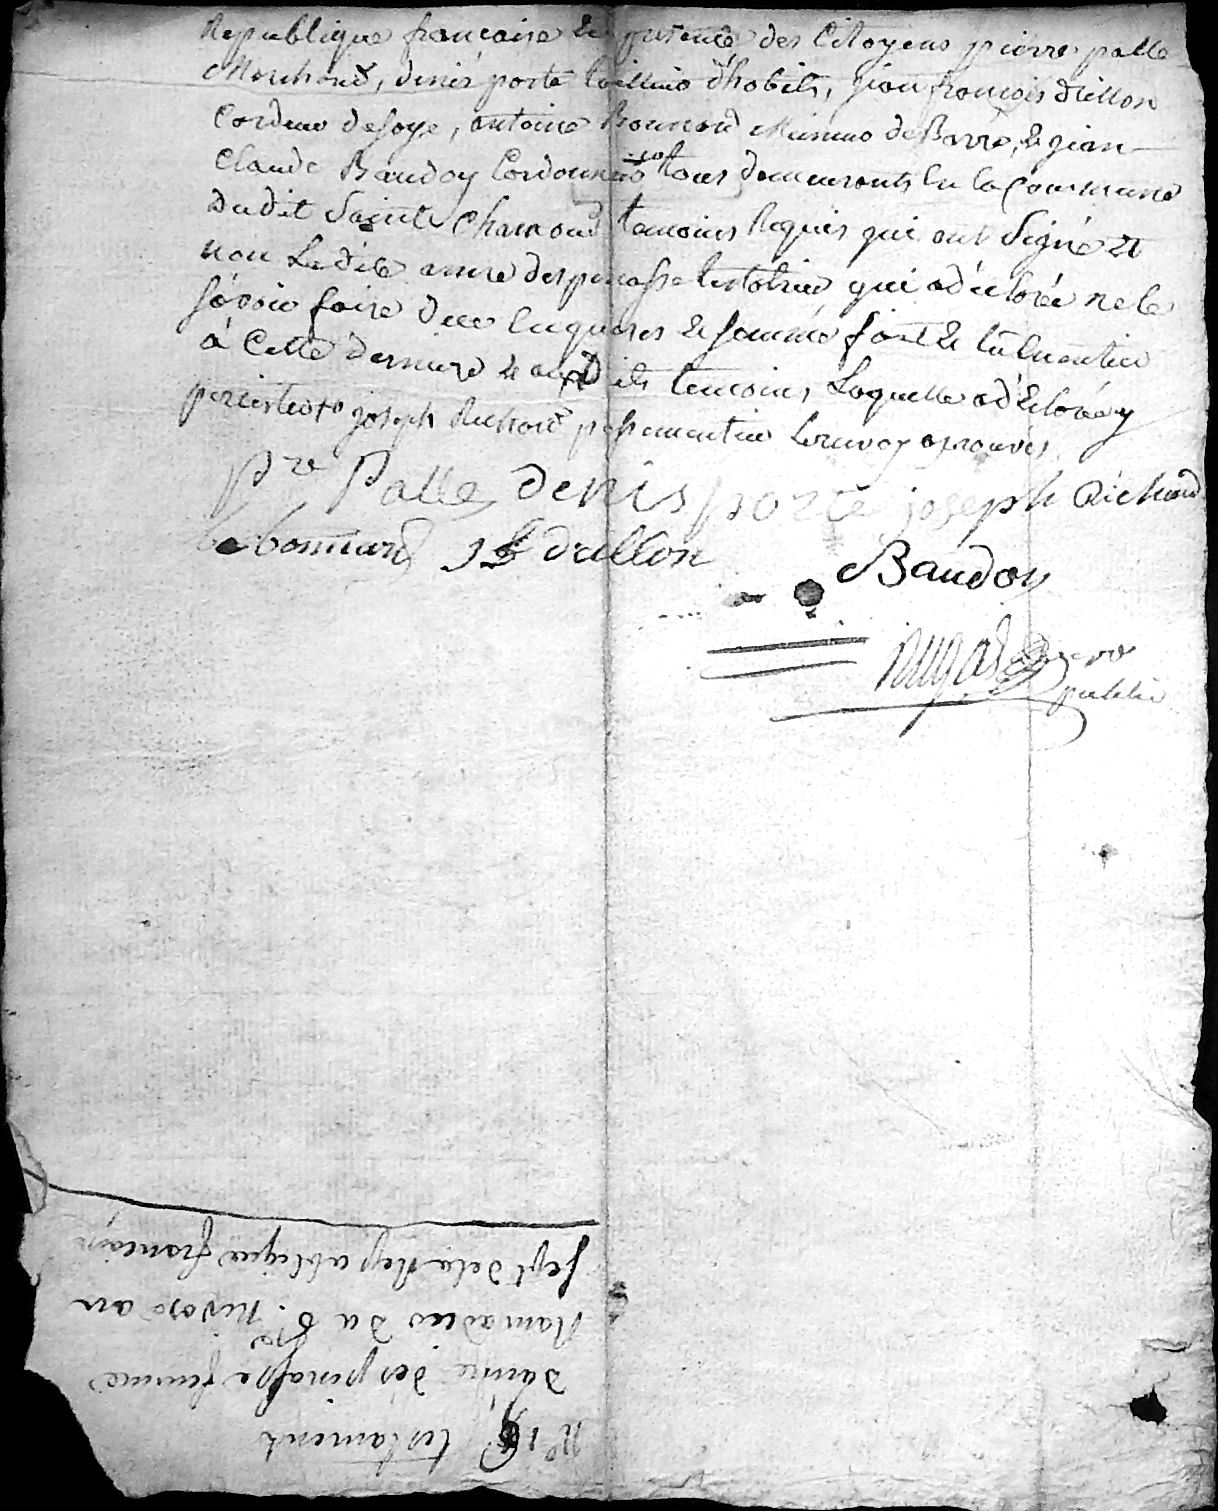 Republique française en presence des Citoyens pierre palle
Marchand, denis porte tailleur d'habits, jean françois drillon
Cordeur de soye, antoine Bonnard Mineur de Barre, & jean
Claude Baudoy Cordonnier tous demeurants en la Commune
dudit Saint Chamond temoins Requis qui ont Signé et
non Ladite anne despinasse testatrice qui a déclorée ne le
sçavoir faire de ce enquises & sommé fait & lu en entier
à Cette derniere & auxdits temoins Laquelle a déclorée y
percister joseph Richard
pre Palle denis porte joseph Richard
bonnard drillon
Baudoy
public
N° testament
danne despinasse femme
du 6 nivose an
sept de la Republique francaise